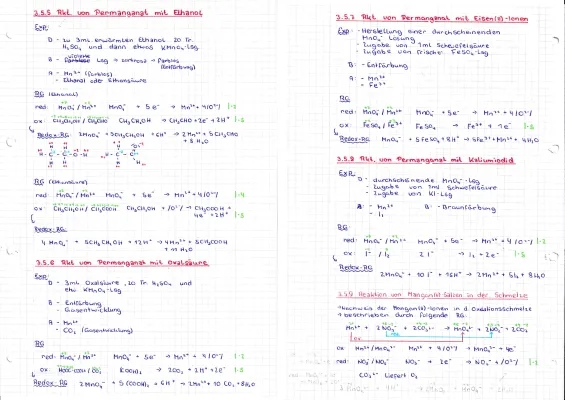 3.5.5 Rkt. von Permanganat mit Ethanol
Exp:
D - zu 3mL erwärmten Ethanol 20 Tr.
H₂SO₄ und dann etwas KMnO₄-Lsg
B - Lsg → farblos
(Entfärbung)
A - Mn²⁺ (farblos)
- Ethanal oder Ethansäure
RG (Ethanal)
red: MnO₄⁻/Mn²⁺ MnO₄⁻ + 5e⁻ → Mn²⁺ + 4/O²⁻/
ox: CH₃CH₂OH/CH₃CHO CH₃CH₂OH → CH₃CHO + 2e⁻ + 2H⁺ |·5
Redox-RG: 2MnO₄⁻ + 5CH₃CH₂OH + 6H⁺ → 2Mn²⁺ + 5CH₃CHO
+ 8H₂O
RG (Ethansäure)
red: MnO₄⁻/Mn²⁺ MnO₄⁻ + 5e⁻ → Mn²⁺ + 4/O²⁻/ |·4
ox: CH₃CH₂OH/CH₃COOH CH₃CH₂OH + /O²⁻/ → CH₃COOH +
4e⁻ + 2H⁺ |·5
Redox-RG:
4MnO₄⁻ + 5CH₃CH₂OH + 12H⁺ → 4Mn²⁺ + 5CH₃COOH
+ 11H₂O
3.5.6 Rkt. von Permanganat mit Oxalsäure
Exp:
D - 3mL Oxalsäure, 20 Tr. H₂SO₄ und
etw. KMnO₄-Lsg
B - Entfärbung
- Gasentwicklung
A - Mn²⁺
- CO₂ (Gasentwicklung)
RG
red: MnO₄⁻/Mn²⁺ MnO₄⁻ + 5e⁻ → Mn²⁺ + 4/O²⁻/ |·2
ox: → 2CO₂ + 2H⁺ + 2e⁻ |·5
Redox-RG 2MnO₄⁻ + 5(COOH)₂ + 6H⁺ → 2Mn²⁺ + 10CO₂ + 8H₂O
3.5.7 Rkt. von Permanganat mit Eisen(II)-Ionen
Exp: - Herstellung einer durchscheinenden
MnO₄⁻ Lösung
- Zugabe von 1mL Schwefelsäure
- Zugabe von frischer FeSO₄-Lsg
B: - Entfärbung
A: - Mn²⁺
- Fe³⁺
RG
red: MnO₄⁻/Mn²⁺ MnO₄⁻ + 5e⁻ → Mn²⁺ + 4/O²⁻/
ox: FeSO₄/Fe³⁺ FeSO₄ → Fe³⁺ + 1e⁻ |·5
Redox-RG: MnO₄⁻ + 5FeSO₄ + 8H⁺ → 5Fe³⁺ + Mn²⁺ + 4H₂O
3.5.8 Rkt. von Permanganat mit Kaliumiodid
Exp:
D - durchscheinende MnO₄⁻-Lsg
- Zugabe von 1mL Schwefelsäure
- Zugabe von KI-Lsg
A: - Mn²⁺ B: - Braunfärbung
- I₂
RG:
red: MnO₄⁻/Mn²⁺ MnO₄⁻ + 5e⁻ → Mn²⁺ + 4/O²⁻/ |·2
ox: I⁻/I₂ 2I⁻ → I₂ + 2e⁻ |·5
Redox-RG
2MnO₄⁻ + 10I⁻ + 16H⁺ → 2Mn²⁺ + 5I₂ + 8H₂O
3.5.9 Reaktion von Mangan(II)-Salzen in der Schmelze
→ Nachweis der Mangan(II)-Ionen in d. Oxidationsschmelze
→ beschrieben durch folgende RG:
Mn²⁺ + 2NO₃⁻ + 2CO₃²⁻ → MnO₄²⁻ + 2NO₂⁻ + 2CO₂
ox
ox: Mn²⁺/MnO₄²⁻ Mn²⁺ + 4/O²⁻/ → MnO₄²⁻ + 4e⁻
red: NO₃⁻/NO₂⁻ NO₃⁻ + 2e⁻ → NO₂⁻ + /O²⁻/
CO₃²⁻ liefert